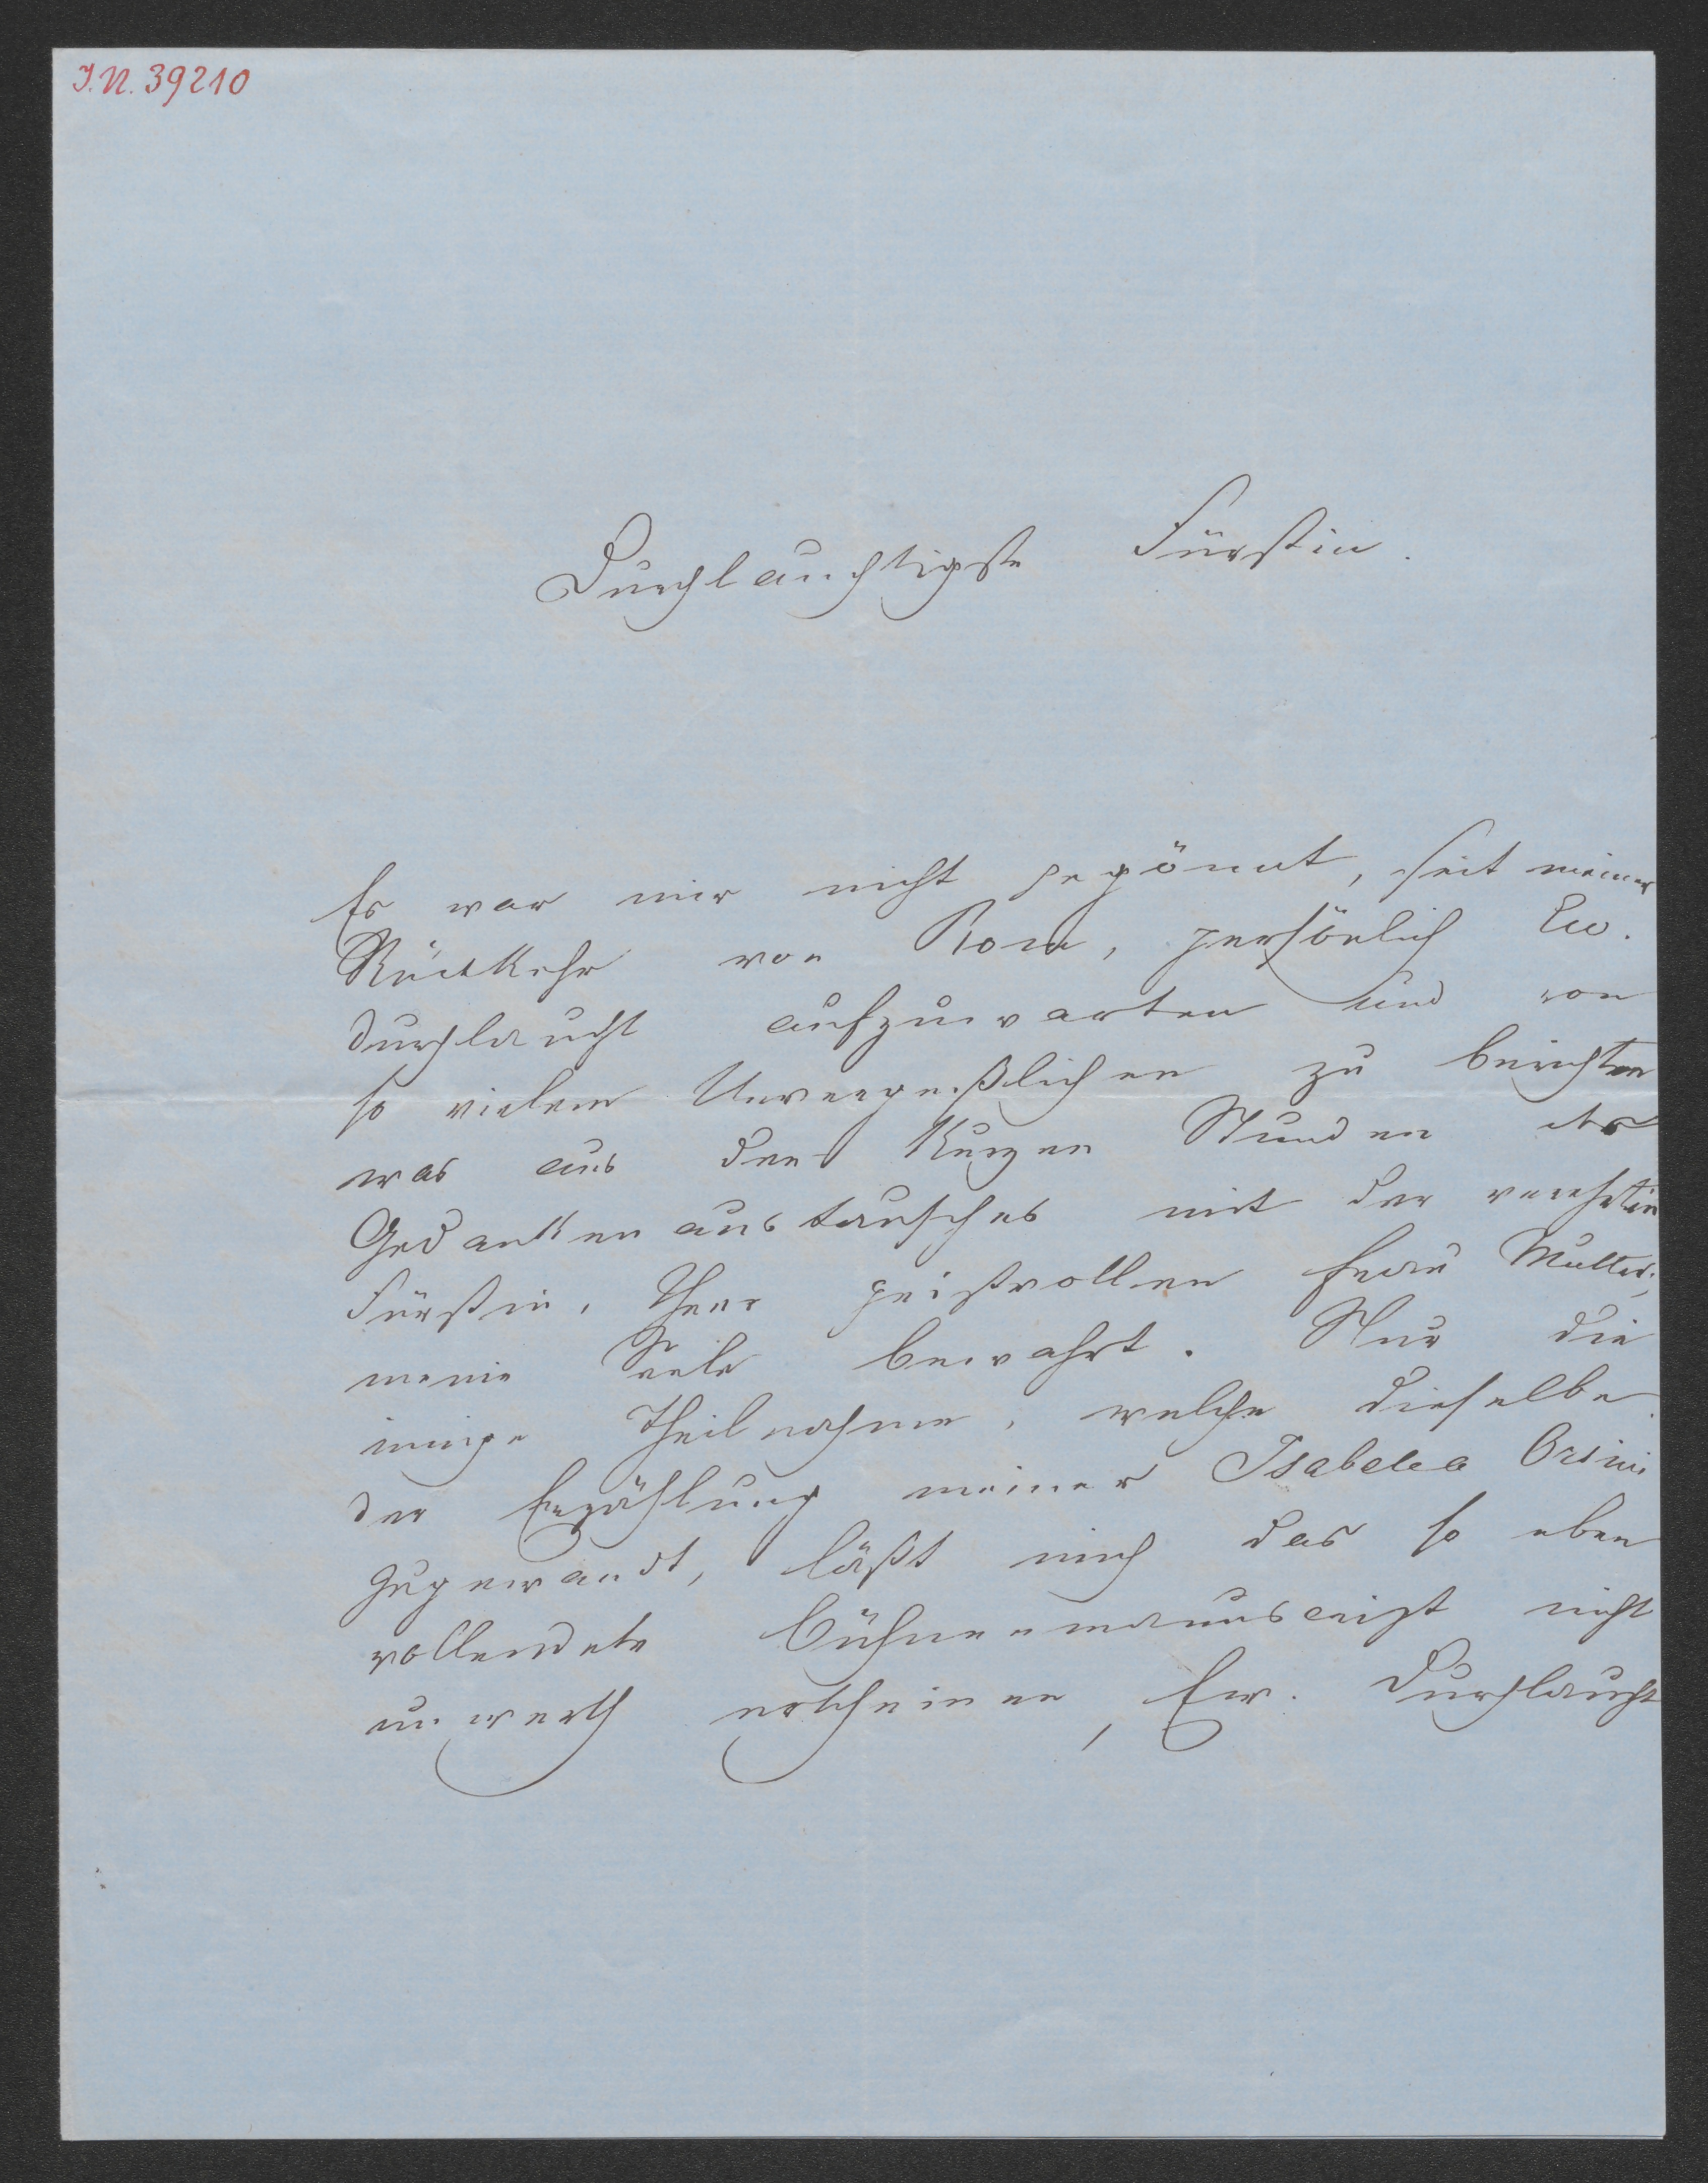 I.N. 39210
Durchlauchtigste Fürstin.
Es war mir nicht gegönnt, seit meiner
Rückkehr von Rom, persönlich Ew.
Durchlaucht aufzuwarten und von
so vielem Unvergeßlichen zu berichten
was aus den kurzen Stunden des
Gedankenaustausches mit der verehrten
Fürstin, Ihrer geistvollen Frau Mutter,
meine Seele bewahrt. Nur die
innige Theilnahme, welche dieselbe
der Erzählung meiner Isabella Orsini
zugewandt, läßt mich das so eben
vollendete Bühnenmanuscript nicht
unwerth erscheinen, Ew. Durchlaucht